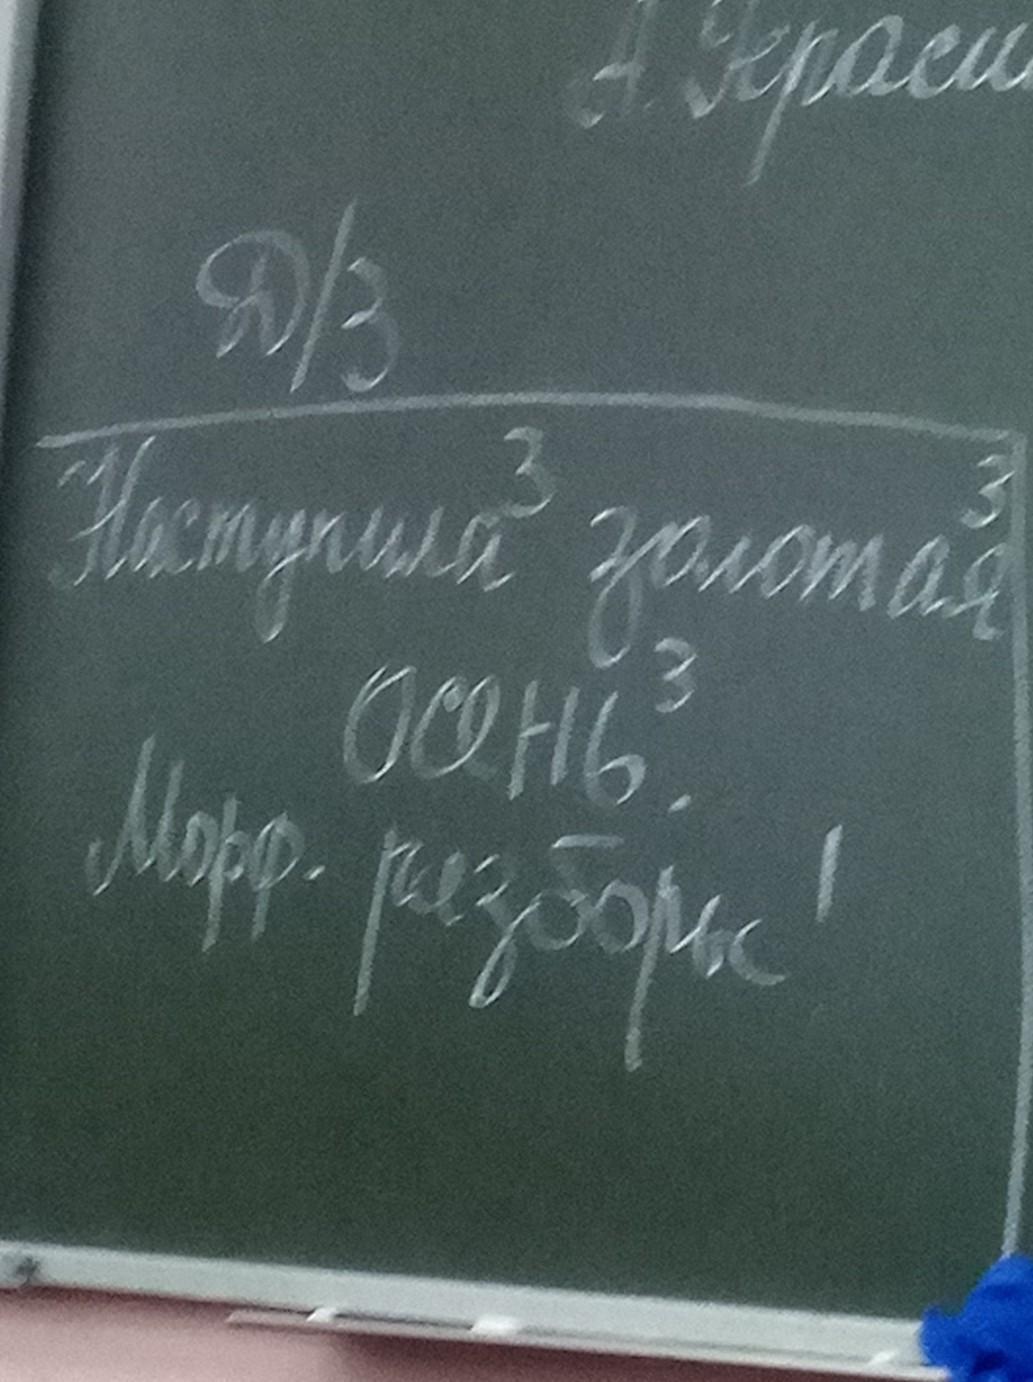 А. Герасим
Д/З
Наступила³ золотая³
осень³.
Морф. разборы!